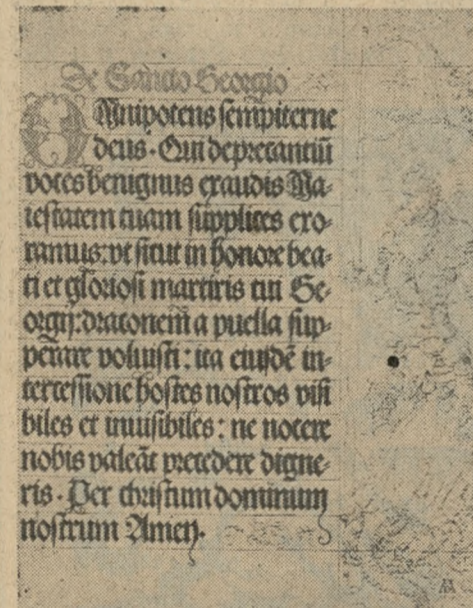 De Sancto Georgio
Omnipotens sempiterne
deus. Qui deprecantiū
voces benignus exaudis Ma-
iestatem tuam supplices exo-
ramus: vt sicut in honore bea-
ti et gloriosi martiris tui Ge-
orgij: draconem a puella sup-
perare voluisti: ita eiusdē in-
tercessione hostes nostros visi
biles et inuisibiles: ne nocere
nobis valeāt precedere digne-
ris. Per christum dominum
nostrum Amen.